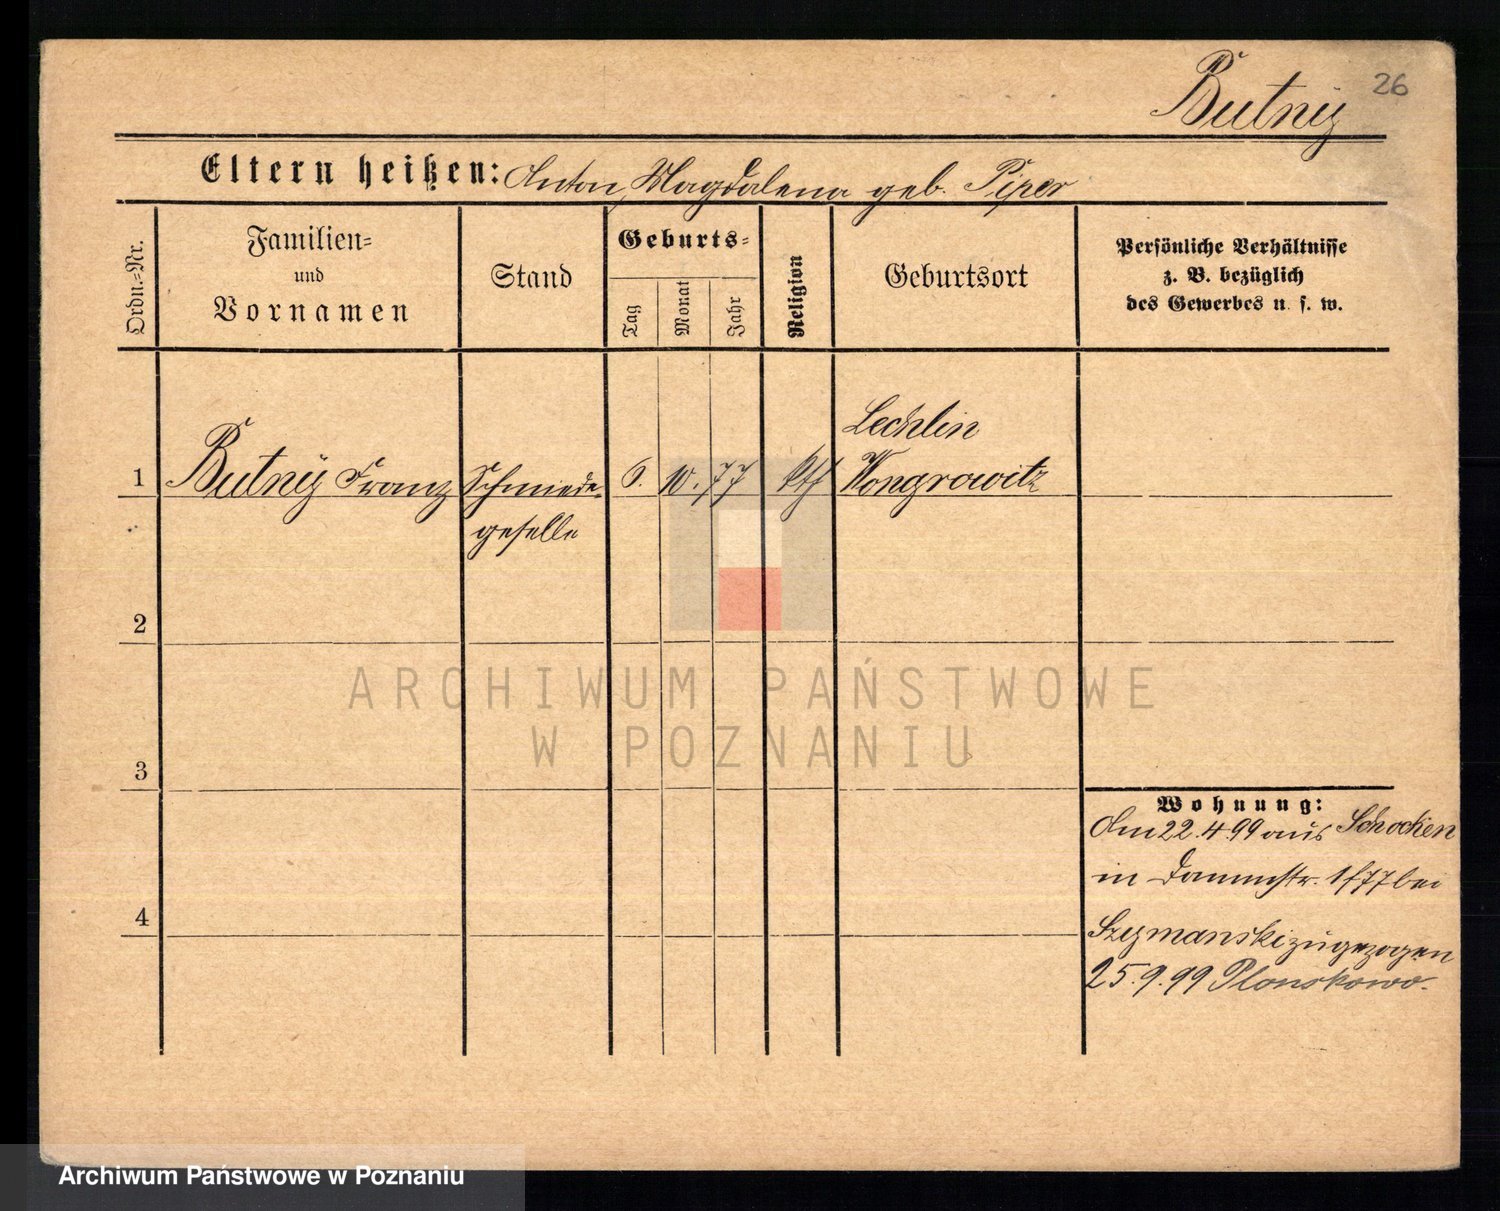 Butny 26
Eltern heißen: Anton, Magdalena geb. Piper
Ordn.-Nr.
Familien-
und
Vornamen
Stand
Geburts-
Tag
Monat
Jahr
Religion
Geburtsort
Persönliche Verhältnisse
z. B. bezüglich
des Gewerbes u. s. w.
Lechlin
1 Butny Franz Schmiede- 6. 10. 77 kth Wongrowitz
geselle
2
ARCHIWUM PAŃSTWOWE
W POZNANIU
3
Wohnung:
Am 22.4.99 aus Schocken
in Dammstr. 1/77 bei
4
Szymanski zugezogen
25.9.99 Plonskowo.
Archiwum Państwowe w Poznaniu